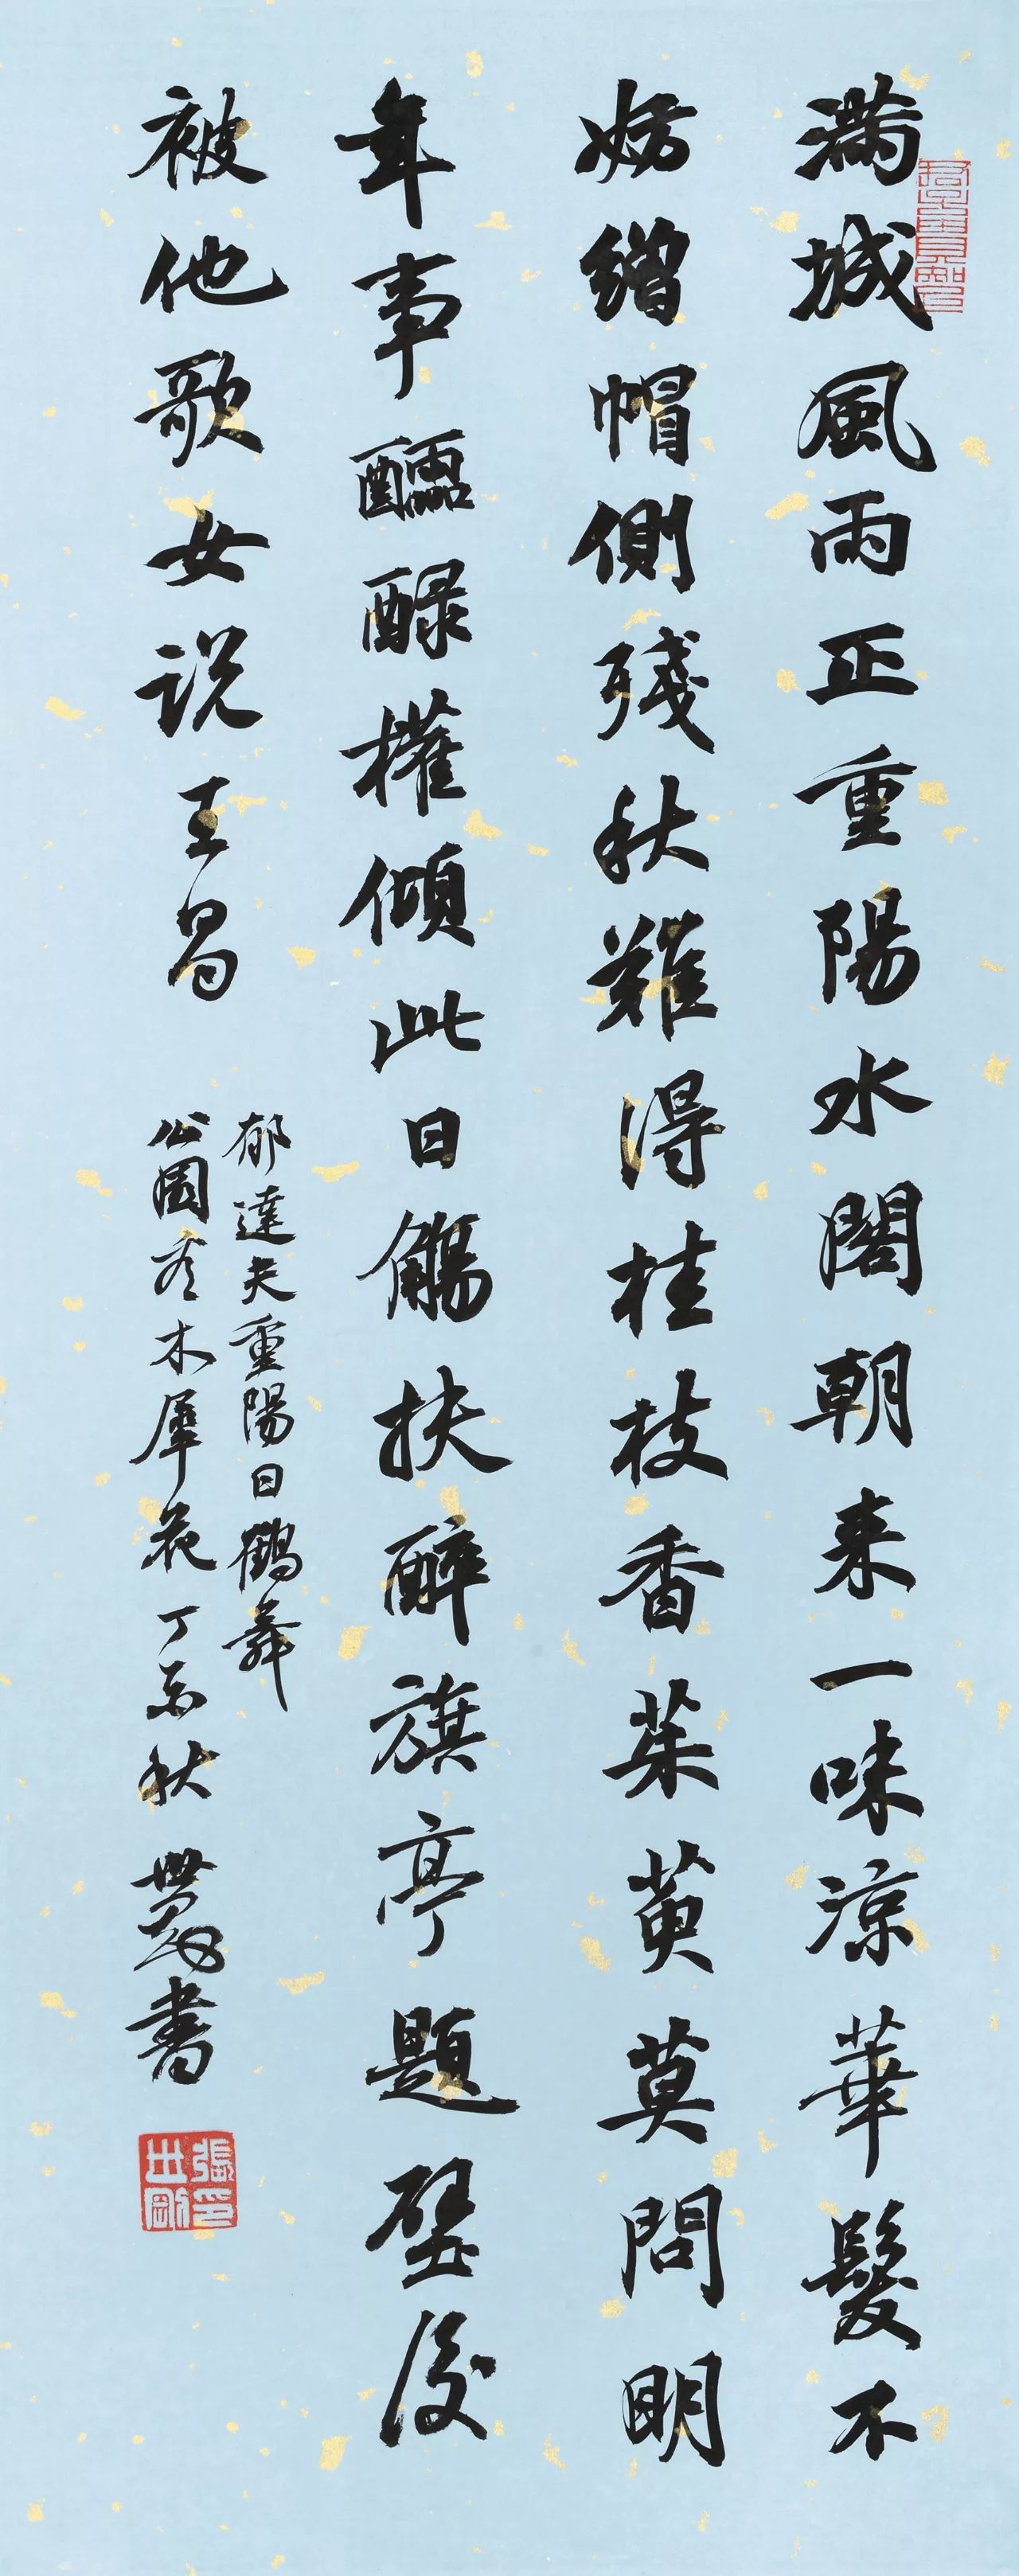 滿城風雨正重陽水閣朝来一味涼華髮不
妨繒帽側殘秋難得桂枝香茱萸莫問明
年事醽醁權傾此日觴扶醉旗亭題壁後
被他歌女説王昌
郁達夫重陽日鶴舞
公園看木犀花丁亥秋 世剛書
張世剛印